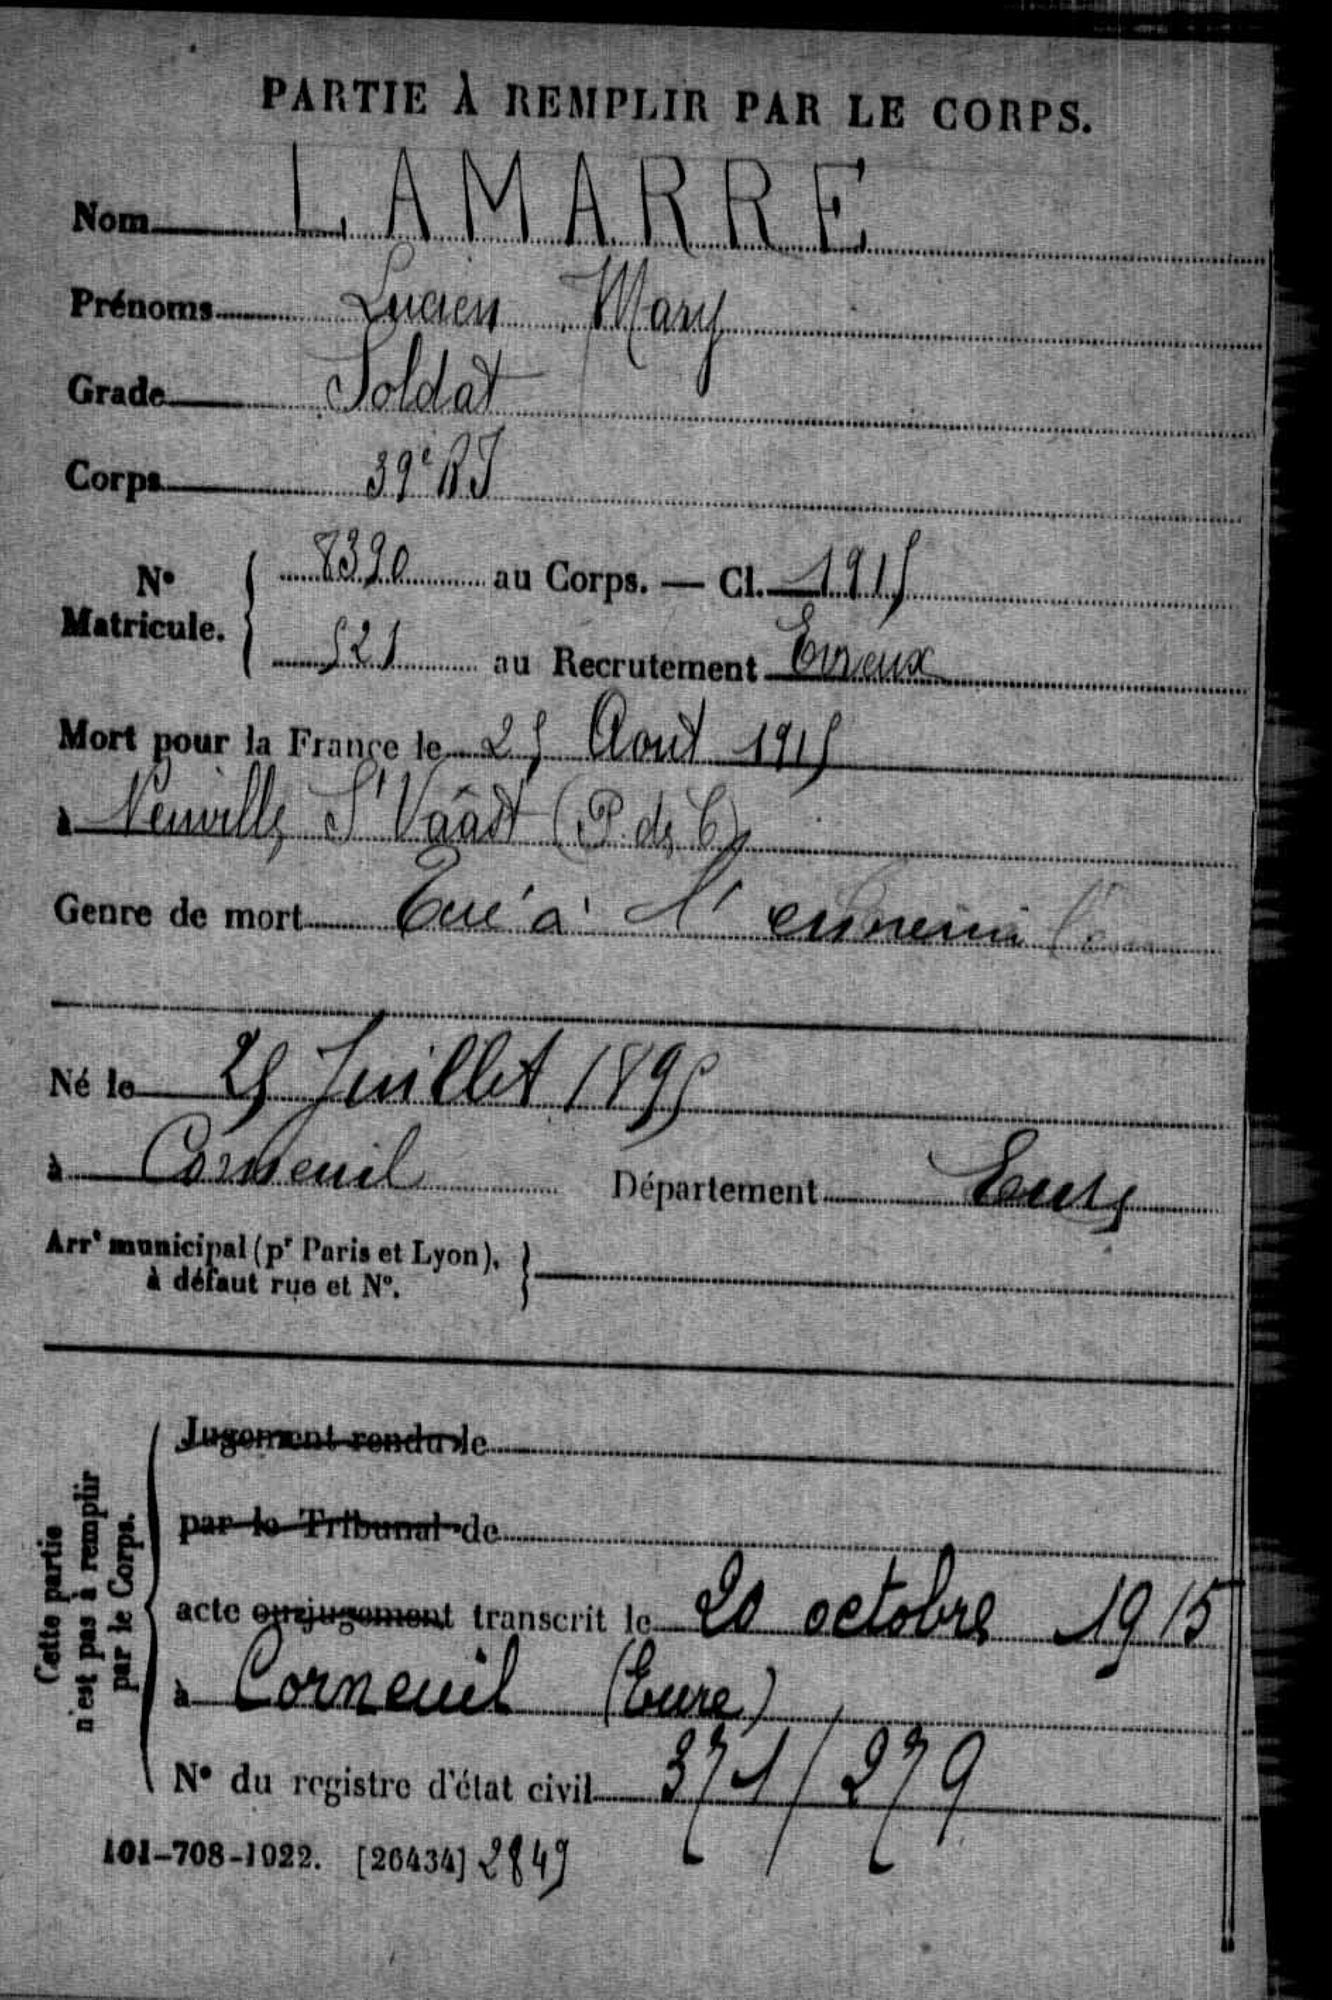 PARTIE À REMPLIR PAR LE CORPS.
Nom LAMARRE
Prénoms Lucien Mary
Grade Soldat
Corps 39e RI
N° Matricule. { 8390 au Corps. — Cl. 1915
521 au Recrutement Evreux
Mort pour la France le 25 Aout 1915
à Neuville St Vaast (P. de C)
Genre de mort Tué à l'ennemi
Né le 25 Juillet 1895
à Corneuil Département Eure
Arrt municipal (pr Paris et Lyon),
à défaut rue et N°.
Cette partie
n'est pas à remplir
par le Corps.
Jugement rendu le
par le Tribunal de
acte ou jugement transcrit le 20 octobre 1915
à Corneuil (Eure)
N° du registre d'état civil 371/279
101-708-1922. [26434] 2849